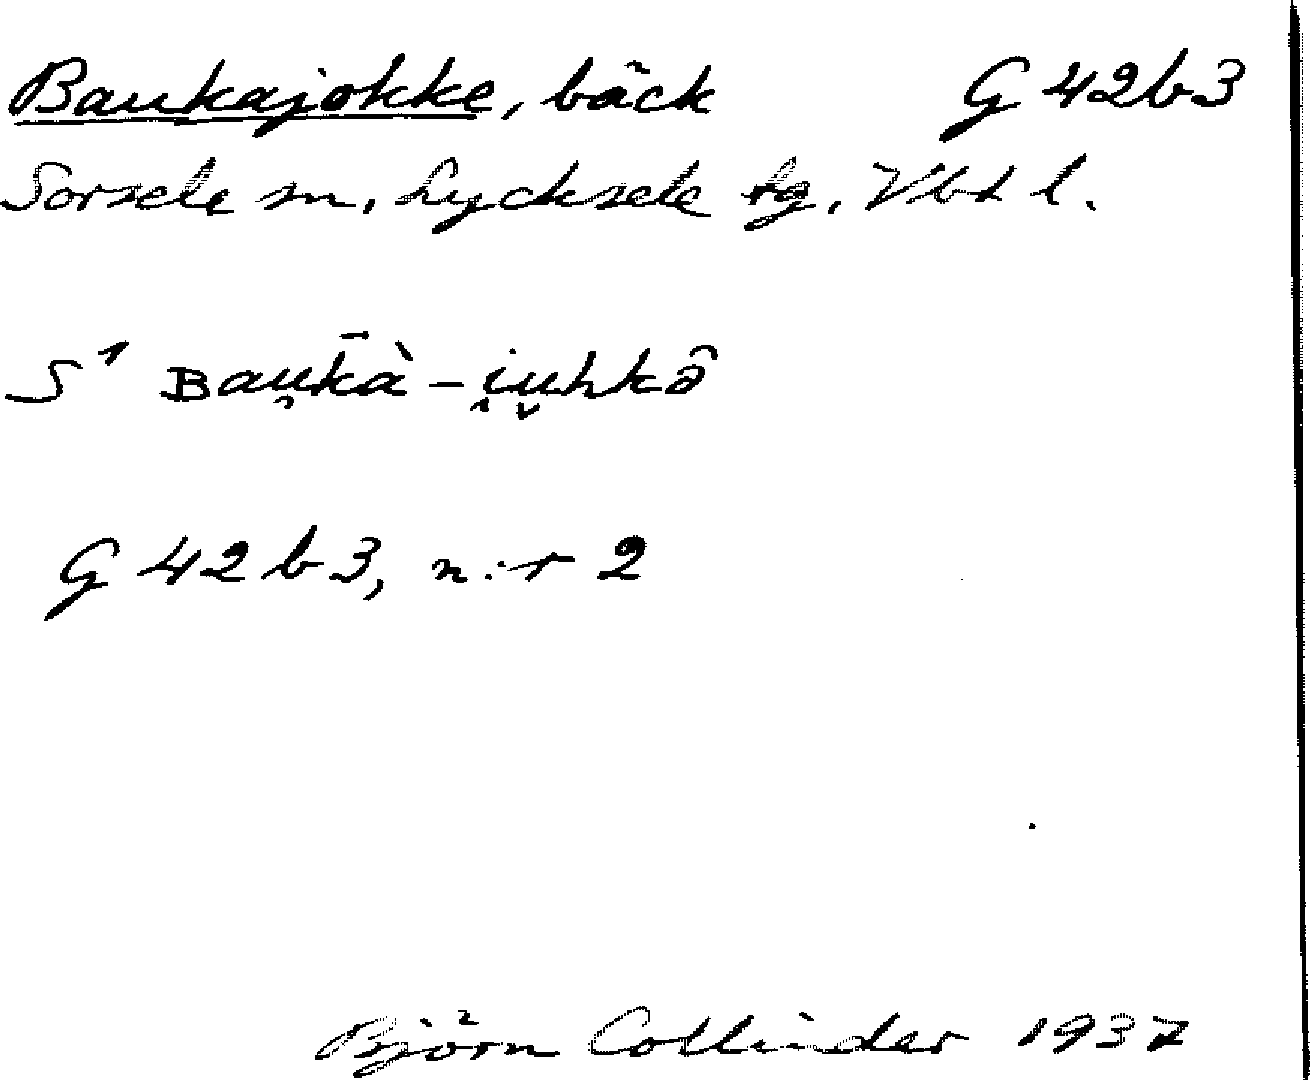 Baukajokke, bäck G 42 b 3
Sorsele sn, Lycksele tg, Vbt l.
S¹ ʙau̯k̄à - i̯u̬hkə̂
G 42 b 3, n:r 2
Björn Collinder 1937